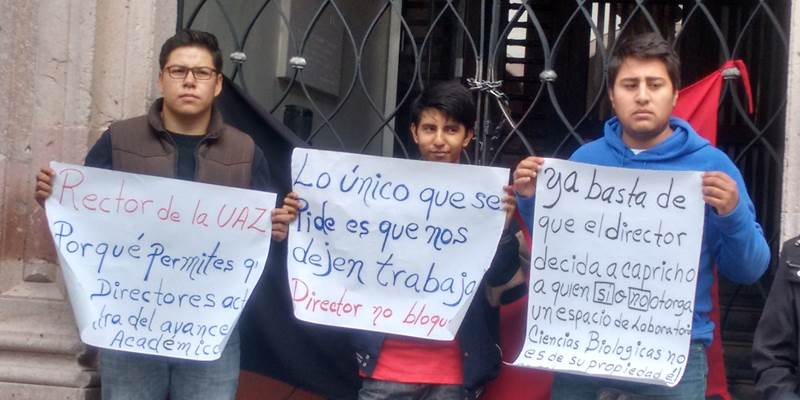 Rector de la UAZ
Porqué Permites q
Directores act
tra del avance
Académico
Lo único que se
Pide es que nos
dejen trabaja
Director no bloque
Ya basta de
que el director
decida a capricho
a quien si o no otorga
un espacio de Laboratorio
Ciencias Biologicas no
es de su propiedad